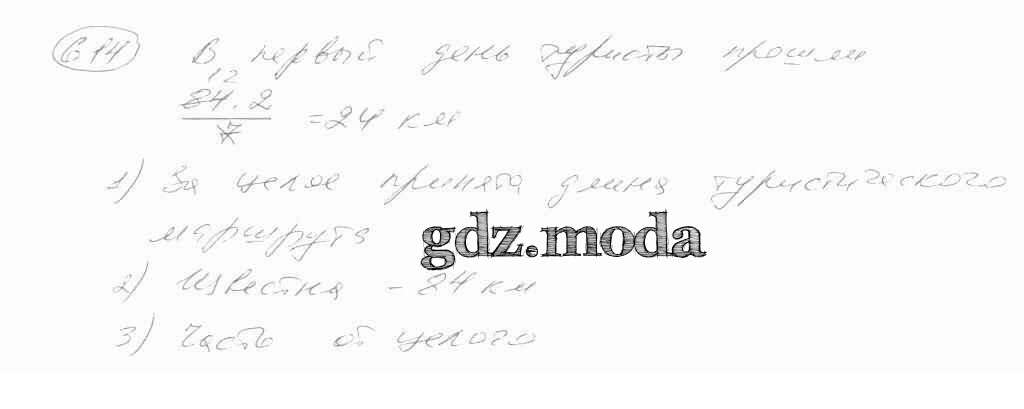 614 В первый день туристы прошли
12
84 · 2
7
= 24 км
1) За целое принята длина туристического
маршрута
gdz.moda
2) Известна - 84 км
3) Часть от целого